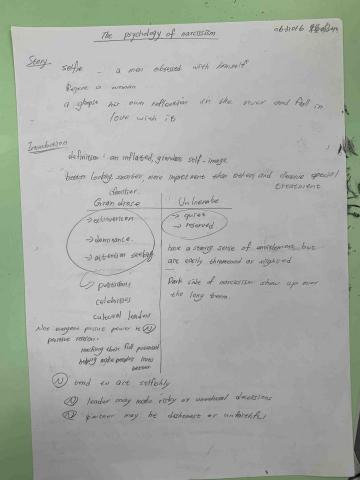 The psychology of narcissism
Story
selfie - a man obsessed with himself
Rejene a woman
a glimpse his own reflection in the river and fell in
love with it
Introduction
definition: an inflated, grandiose self-image
better looking, smarter, more important than others, and deserve special
treatment
Grandiose
Vulnerable
→ extraversion
→ quiet
→ dominance
→ reserved
→ attention seeking
have a strong sense of entitlement, but
are easily threatened or slighted
politicians
Dark side of narcissism show up over
celebrities
the long term
cultural leaders
Not everyone pursue power is (N)
positive reason:
reaching their full potential
helping make people's lives
better
(N) tend to act selfishly
(N) leader may make risky or unethical decisions
(N) partner may be dishonest or unfaithful